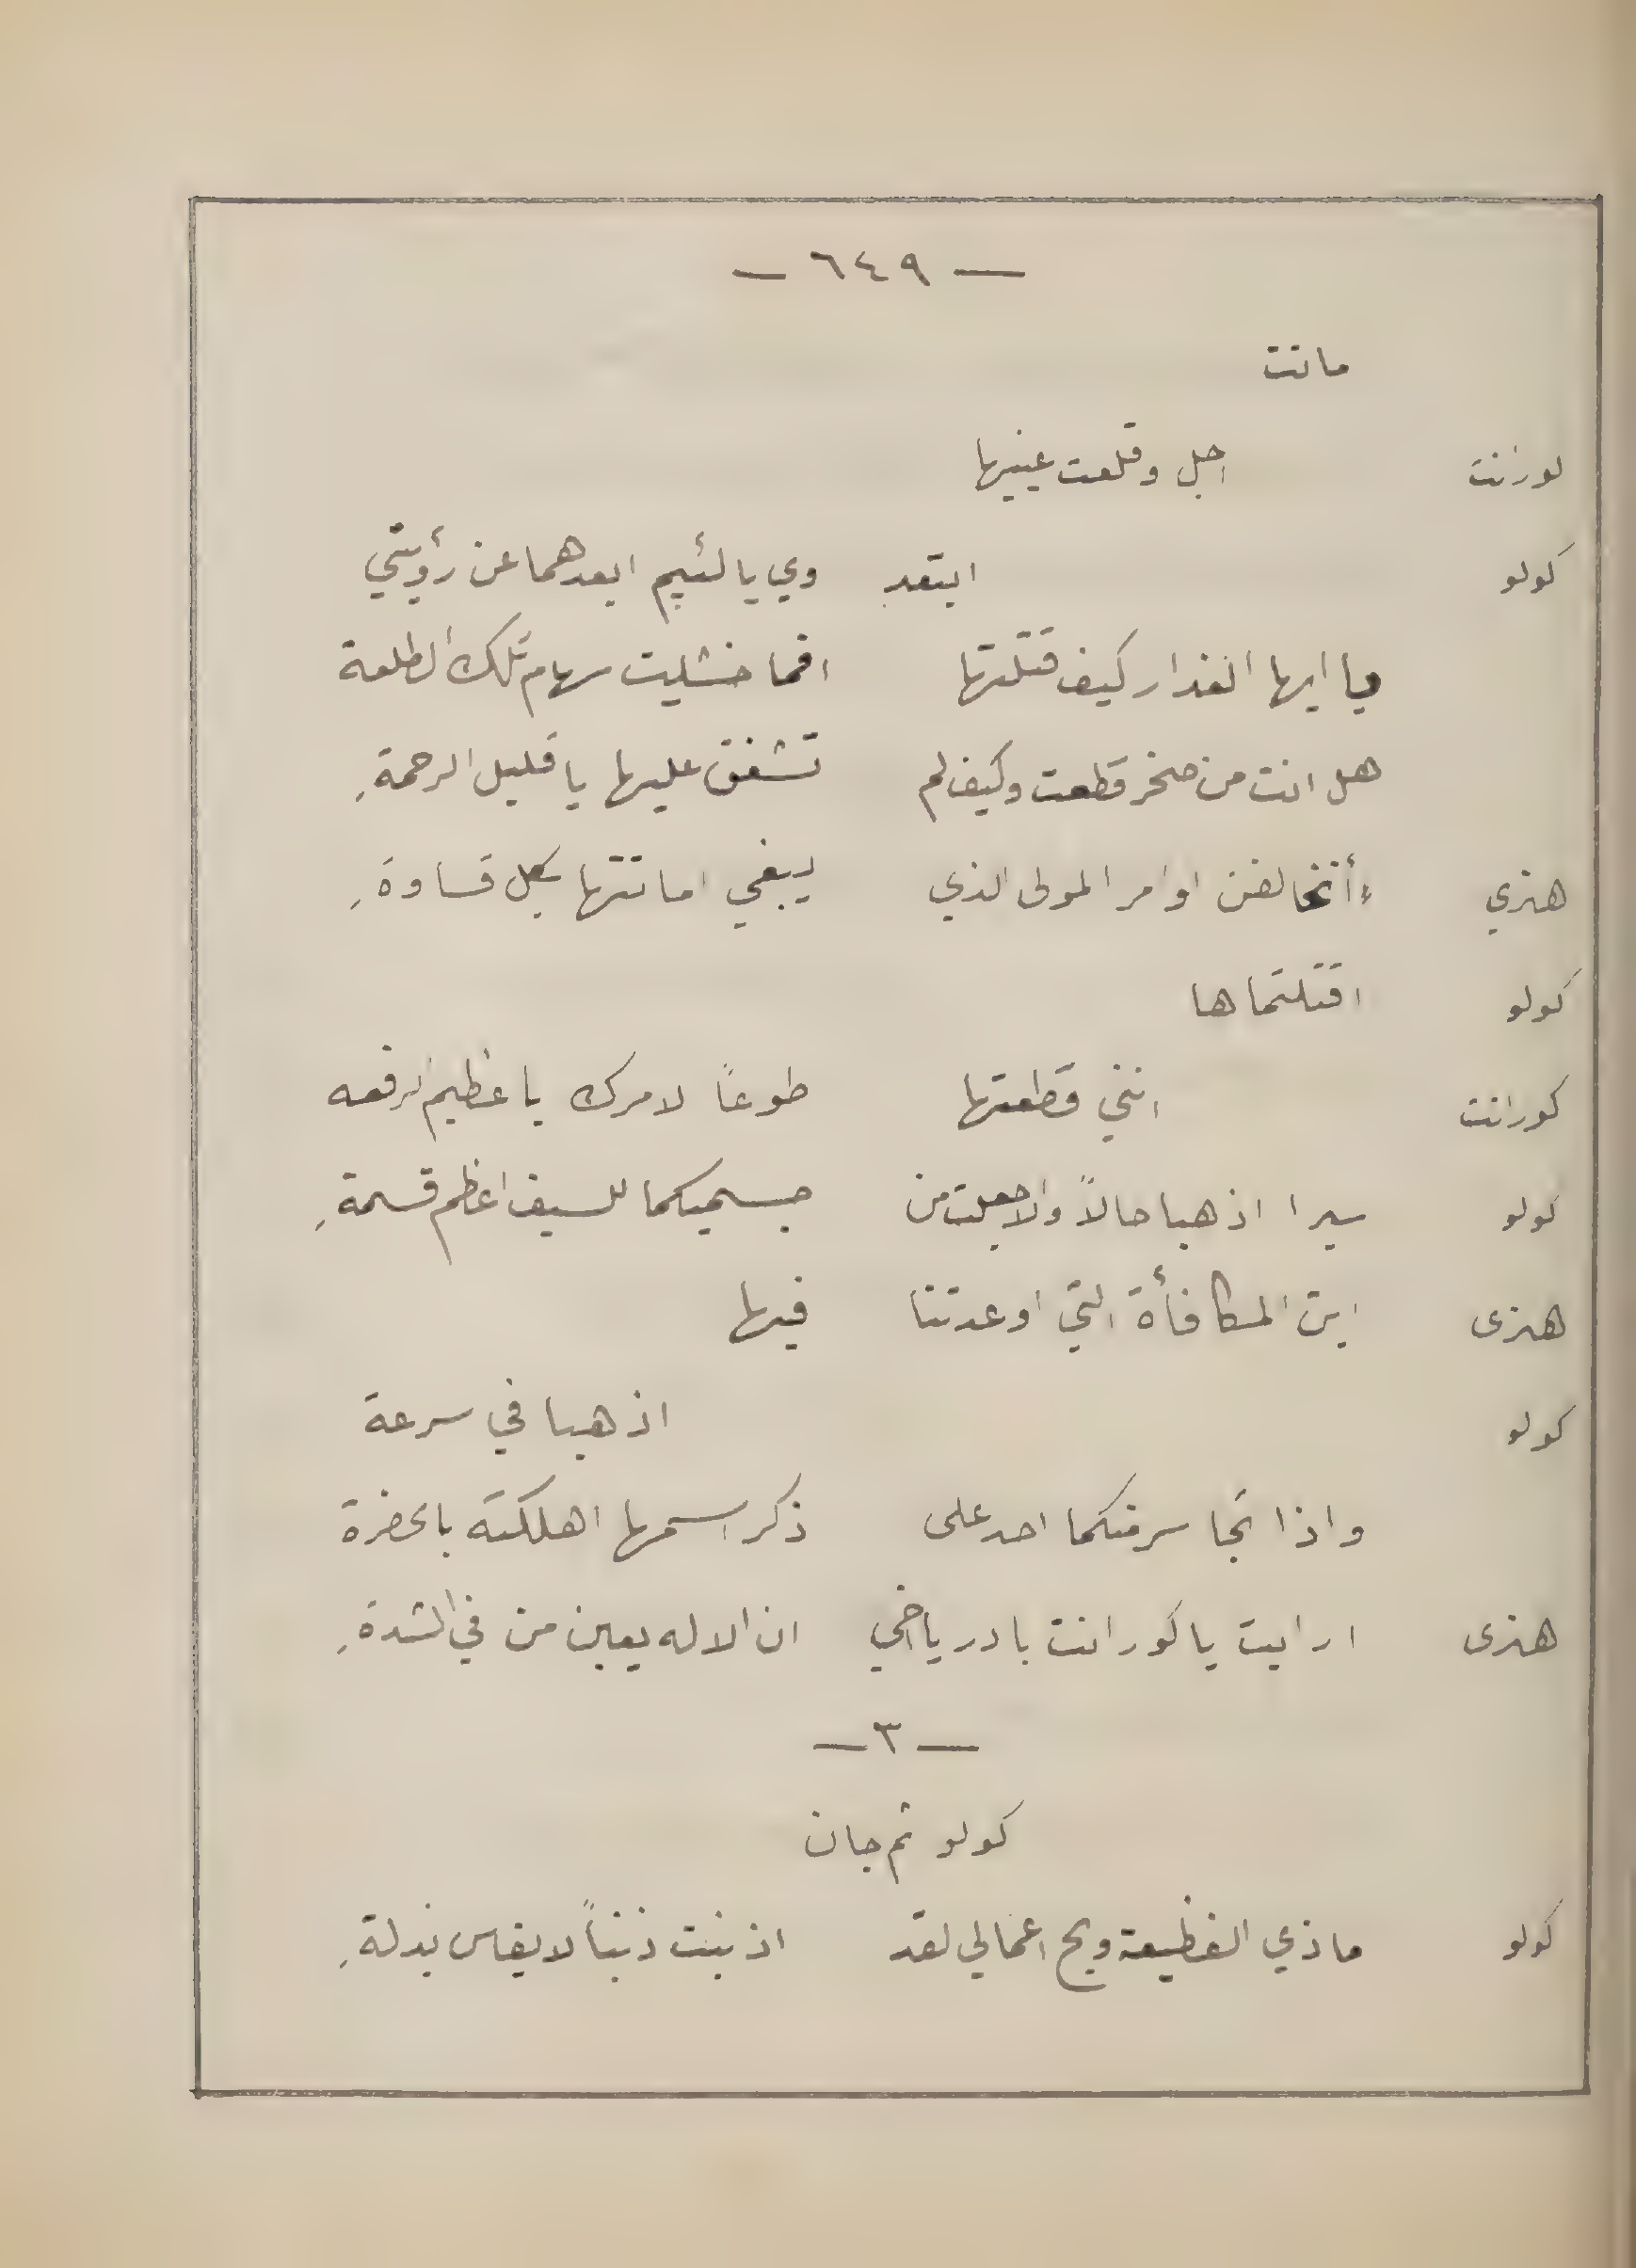 — ٦٤٩ —
ماتت
لورانت اجل وقلعت عينيها
كولو ابتعد وي يا لئيم ابعدهما عن رؤيتي
يا ايها الغدار كيف قتلتها افما خشيت سهام تلك الطلعة
هل انت من صخر قطعت وكيف لم تشفق عليها يا قليل الرحمةِ
هنري أنخالفن اوامر المولى الذي يبغي اماتتها بكل قساوةِ
كولو اقتلتماها
كورانت انني قطعتها طوعاً لامرك يا عظيم الرفعه
كولو سيرا اذهبا حالاً والا جعلت من جسميكما للسيف اعظم قسمةِ
هنرى اين المكافأة التي اوعدتنا فيها
كولو اذهبا في سرعة
واذا تجاسر منكما احد على ذكر اسمها اهلكته بالحضرة
هنرى ارايت يا كورانت بادر يا اخي ان الاله يعين من في الشدةِ
— ٣ —
كولو ثم جان
كولو ماذي الفظيعة ويح اعمالي لقد اذنبت ذنباً لا يقاس بذلةِ